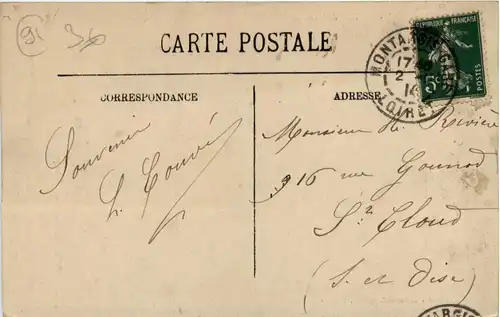 95 36
CARTE POSTALE
REPUBLIQUE FRANÇAISE
5c
POSTES
MONTARGIS GARE
17
2
14
LOIRET
CORRESPONDANCE
ADRESSE
Souvenir
Monsieur H. Rivière
16 rue Gounod
St Cloud
(S. et Oise)
ARGIS